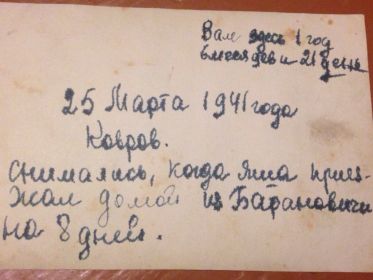 Вале здесь 1 год
6 месяцев и 21 день
25 Марта 1941 года
Ковров.
Снимались, когда яша приез-
жал домой из Барановичи
на 8 дней.